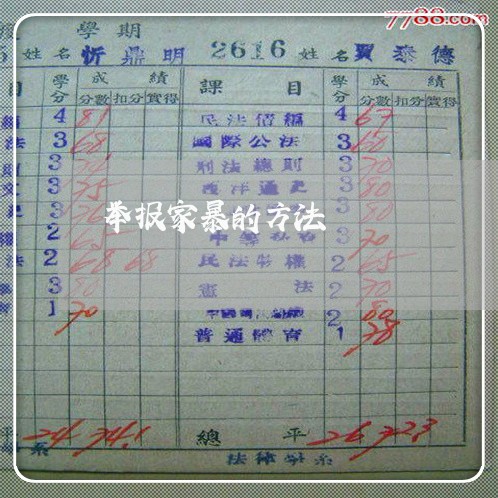 7788.com
學期
姓名 忻鼎明 2616 姓名 賈泰德
目 學分 成績 課目 學分 成績
分數 扣分 實得 分數 扣分 實得
4 81 民法債編 4 67
法 3 68 國際公法 3 60
3 刑法總則 3 70
3 75 西洋通史 3 80
3 3 80
舉报家暴的方法
2 65 3 70
法 2 68 68 民法物權 2 65
3 80 憲法 2 70
1 70 2 80
普通體育 1 78
平 24 74.1 總平 26 72.3
系 法律學系